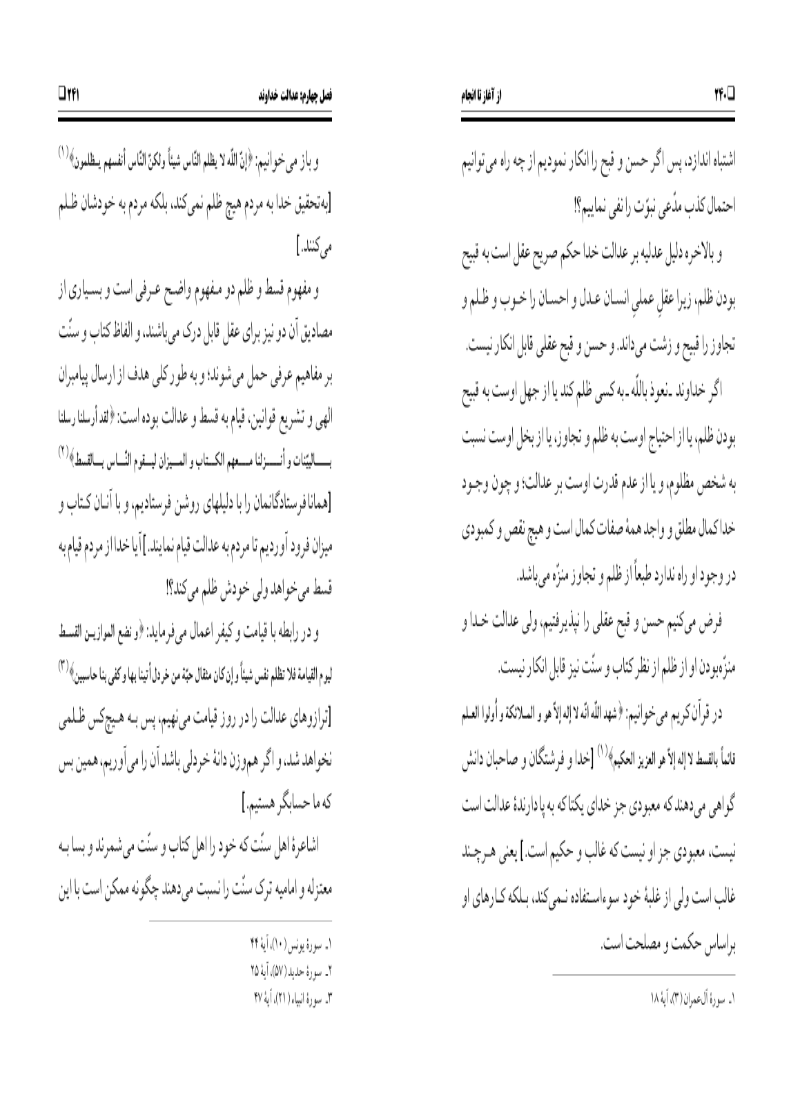 ❑ ۲۴۰ از آغاز تا انجام
اشتباه اندازد، پس اگر حسن و قبح را انکار نمودیم از چه راه می‌توانیم
احتمال کذب مدّعی نبوّت را نفی نماییم؟!
و بالاخره دلیل عدلیه بر عدالت خدا حکم صریح عقل است به قبیح
بودن ظلم، زیرا عقلِ عملیِ انسان عدل و احسان را خوب و ظلم و
تجاوز را قبیح و زشت می‌داند. و حسن و قبح عقلی قابل انکار نیست.
اگر خداوند ـ نعوذ باللّه ـ به کسی ظلم کند یا از جهل اوست به قبیح
بودن ظلم، یا از احتیاج اوست به ظلم و تجاوز، یا از بخل اوست نسبت
به شخص مظلوم، و یا از عدم قدرت اوست بر عدالت؛ و چون وجود
خدا کمال مطلق و واجد همهٔ صفات کمال است و هیچ نقص و کمبودی
در وجود او راه ندارد طبعاً از ظلم و تجاوز منزّه می‌باشد.
فرض می‌کنیم حسن و قبح عقلی را نپذیرفتیم، ولی عدالت خدا و
منزّه‌بودن او از ظلم از نظر کتاب و سنّت نیز قابل انکار نیست.
در قرآن کریم می‌خوانیم: ﴿شهد اللّه انّه لا إله إلاّ هو و الملائکة و أُولوا العلم
قائماً بالقسط لا إله إلاّ هو العزیز الحکیم﴾(۱) [خدا و فرشتگان و صاحبان دانش
گواهی می‌دهند که معبودی جز خدای یکتا که به پا دارندهٔ عدالت است
نیست، معبودی جز او نیست که غالب و حکیم است.] یعنی هرچند
غالب است ولی از غلبهٔ خود سوءاستفاده نمی‌کند، بلکه کارهای او
براساس حکمت و مصلحت است.
۱ـ سورهٔ آل‌عمران (۳)، آیهٔ ۱۸
فصل چهارم: عدالت خداوند ۲۴۱ ❑
و باز می‌خوانیم: ﴿إنّ اللّه لا یظلم النّاس شیئاً ولکنّ النّاس أنفسهم یظلمون﴾(۱)
[به‌تحقیق خدا به مردم هیچ ظلم نمی‌کند، بلکه مردم به خودشان ظلم
می‌کنند.]
و مفهوم قسط و ظلم دو مفهوم واضح عرفی است و بسیاری از
مصادیق آن دو نیز برای عقل قابل درک می‌باشند، و الفاظ کتاب و سنّت
بر مفاهیم عرفی حمل می‌شوند؛ و به طور کلی هدف از ارسال پیامبران
الهی و تشریع قوانین، قیام به قسط و عدالت بوده است: ﴿لقد أرسلنا رسلنا
بالبیّنات و أنزلنا معهم الکتاب و المیزان لیقوم النّاس بالقسط﴾(۲)
[همانا فرستادگانمان را با دلیلهای روشن فرستادیم، و با آنان کتاب و
میزان فرود آوردیم تا مردم به عدالت قیام نمایند.] آیا خدا از مردم قیام به
قسط می‌خواهد ولی خودش ظلم می‌کند؟!
و در رابطه با قیامت و کیفر اعمال می‌فرماید: ﴿و نضع الموازین القسط
لیوم القیامة فلا تظلم نفس شیئاً و إن کان مثقال حبّة من خردل أتینا بها و کفی بنا حاسبین﴾(۳)
[ترازوهای عدالت را در روز قیامت می‌نهیم، پس به هیچ‌کس ظلمی
نخواهد شد، و اگر هم‌وزن دانهٔ خردلی باشد آن را می‌آوریم، همین بس
که ما حسابگر هستیم.]
اشاعرهٔ اهل سنّت که خود را اهل کتاب و سنّت می‌شمرند و بسا به
معتزله و امامیه ترک سنّت را نسبت می‌دهند چگونه ممکن است با این
۱ـ سورهٔ یونس (۱۰)، آیهٔ ۴۴
۲ـ سورهٔ حدید (۵۷)، آیهٔ ۲۵
۳ـ سورهٔ انبیاء (۲۱)، آیهٔ ۴۷